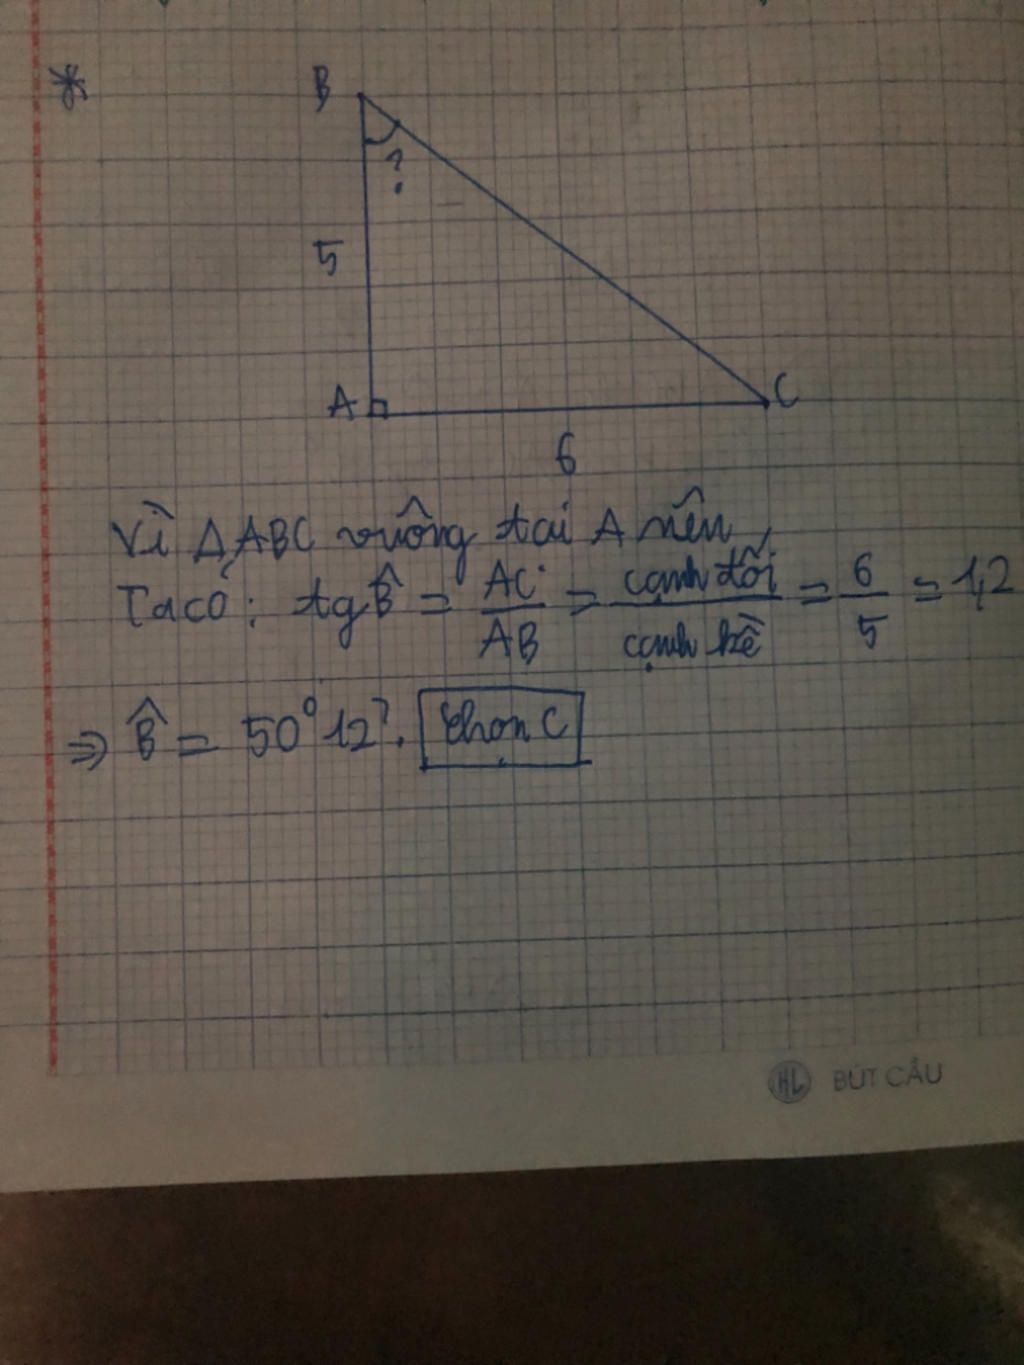 *
B
?
5
A
C
6
Vì ΔABC vuông tại A nên
Ta có: tg B̂ = AC/AB = cạnh đối/cạnh kề = 6/5 = 1,2
⇒ B̂ = 50°12'. Chọn C
HL BÚT CÂU